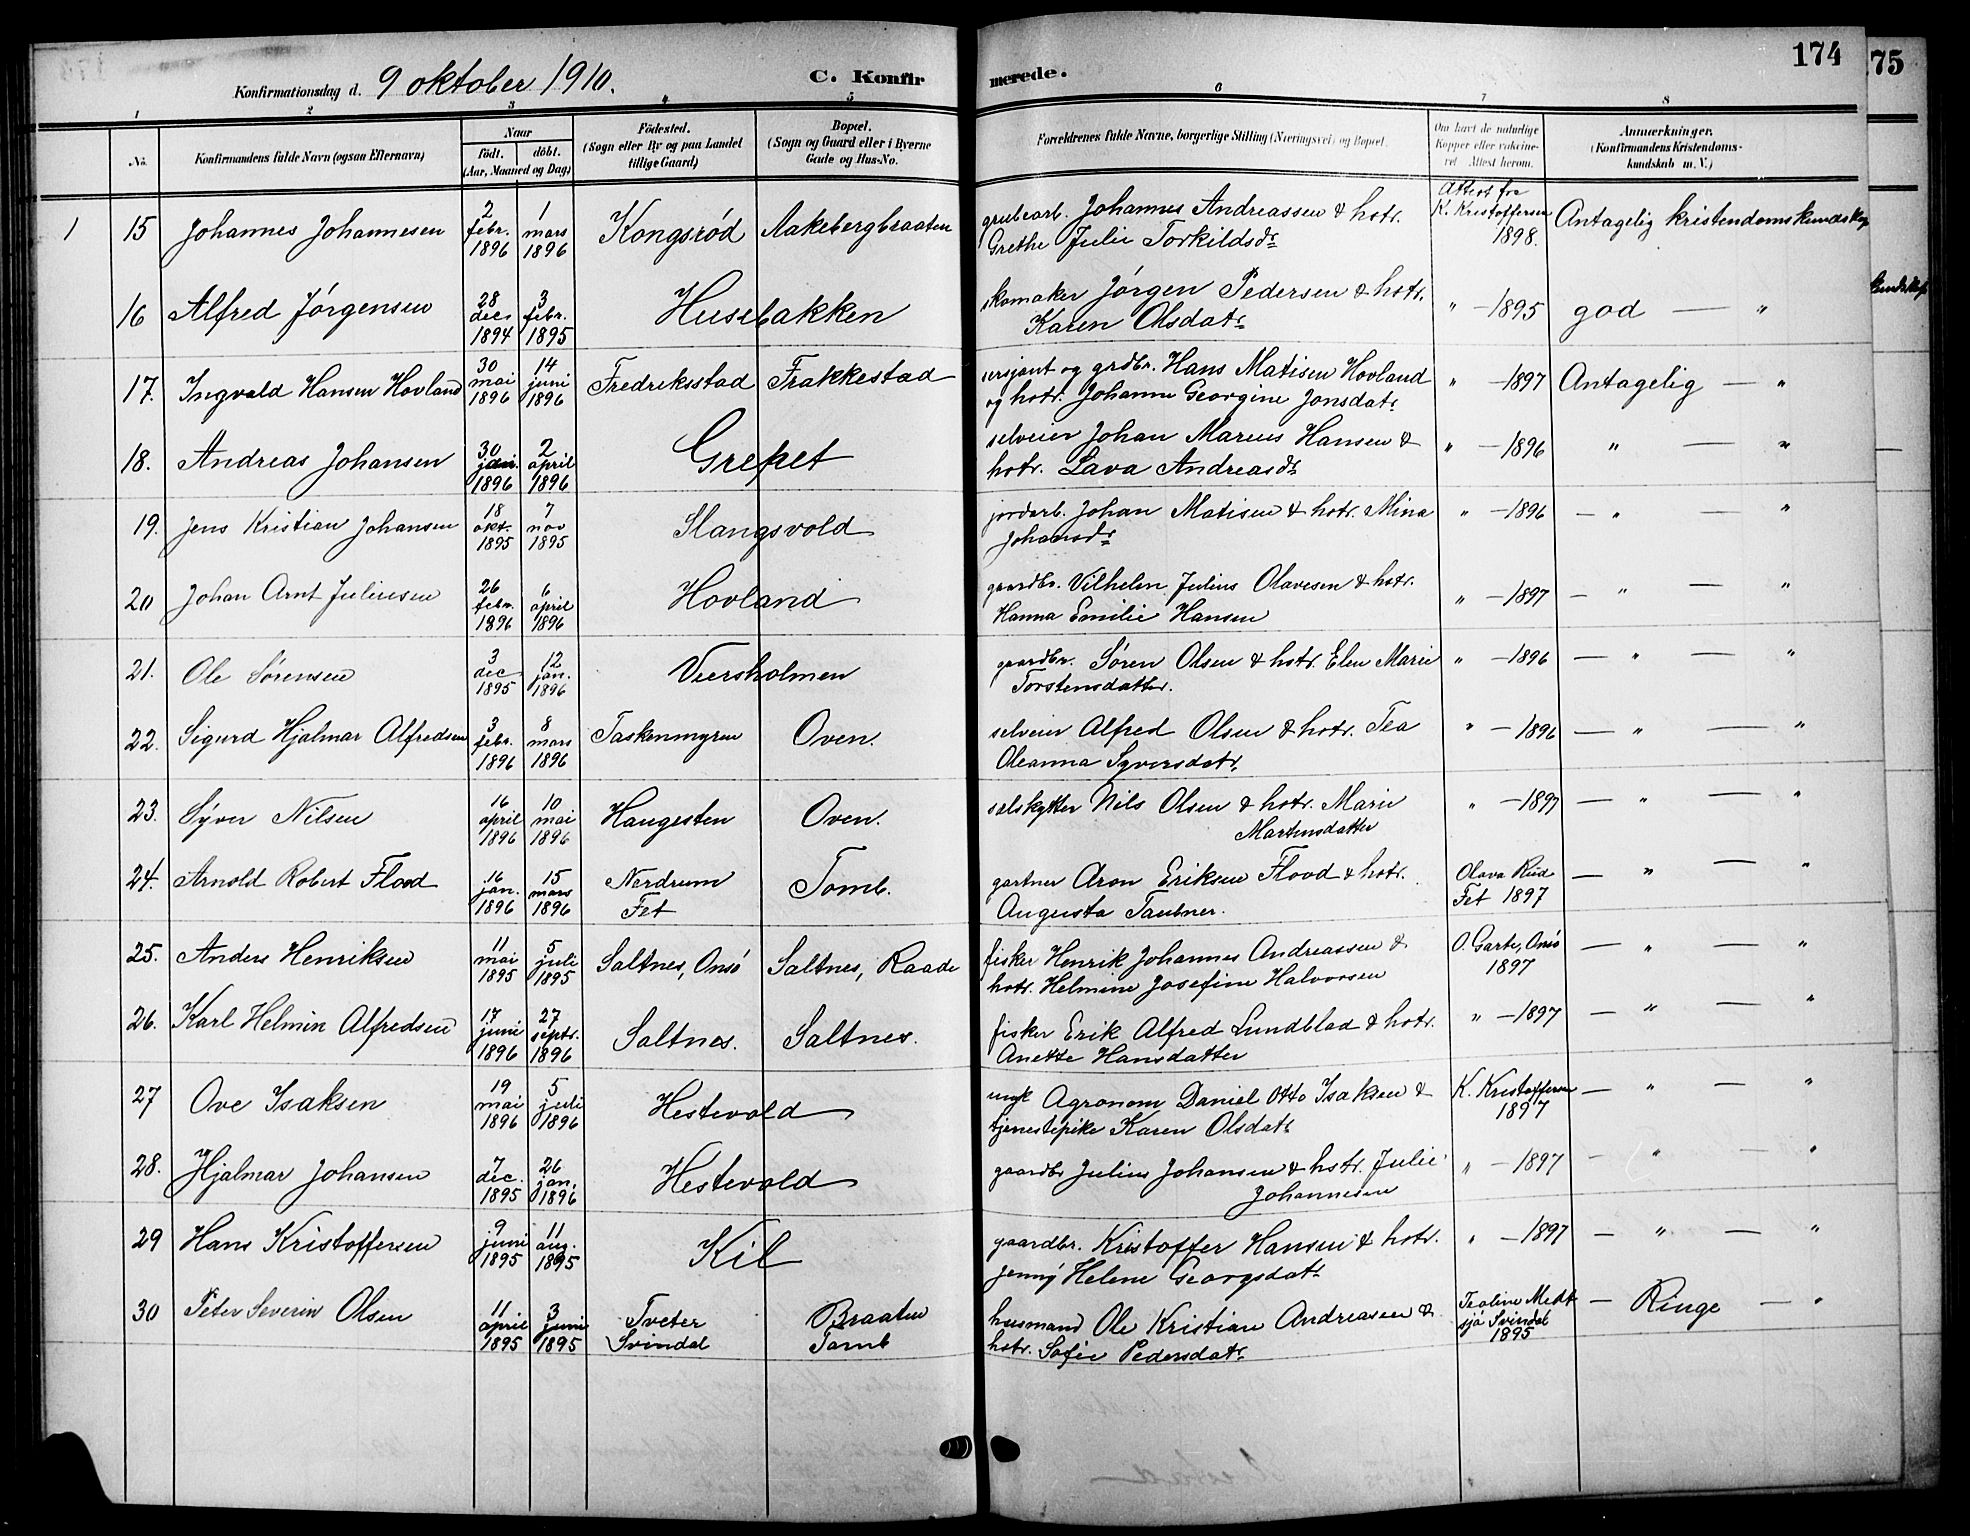 174
75
Konfirmationsdag d. 9 oktober 1910.
C. Konfir
merede.
1 2 3 4 5 6 7 8
No.
Konfirmandens fulde Navn (ogsaa Efternavn)
Naar
født. døbt.
(Aar, Maaned og Dag)
Fødested.
(Sogn eller By og paa Landet
tillige Gaard)
Bopæl.
(Sogn og Gaard eller i Byerne
Gade og Hus-No.
Forældrenes fulde Navne, borgerlige Stilling (Næringsvei) og Bopæl.
Om havt de naturlige
Kopper eller vakcine-
ret Attest herom.
Anmerkninger.
(Konfirmandens Kristendoms-
kundskab m. V.)
1 15 Johannes Johannesen 2 febr. 1896 1 mars 1896 Kongsrød Aakebergbraaten
grubearb. Johannes Andreassen & hstr.
Grethe Julie Torkildsdr
Attest fra
K. Kristoffersen
1898.
Antagelig kristendomskundskap
16 Alfred Jørgensen 28 dec. 1894 3 febr. 1895 Husebakken
skomaker Jørgen Pedersen & hstr.
Karen Olsdatr
" - 1895 god — "
17. Ingvald Hansen Hovland 30 mai 1896 14 juni 1896 Fredriksstad Frakkestad
sersjant og grdbr. Hans Matisen Hovland
og hstr. Johanne Georgine Jonsdatr
" - 1897 Antagelig — "
18. Andreas Johansen 30 1896 2 april 1896 Grepet
selveier Johan Marius Hansen &
hstr. Lava Andreasdr
" - 1896 " — "
19. Jens Kristian Johansen 18 okt. 1895 7 nov 1895 Slangsvold
jordarb. Johan Matisen & hstr. Mina
Johansdr
" - 1896 — " "
20 Johan Arnt Juliusen 26 febr. 1896 6 april 1896 Hovland
gaardbr. Vilhelm Julius Olavesen & hstr.
Hanna Emilie Hansen
" - 1897 — " — "
21. Ole Sørensen 3 dec 1895 12 jan. 1896 Veersholmen
gaardbr. Søren Olsen & hstr. Elen Marie
Torstensdatter.
" - 1896 — " — "
22. Sigurd Hjalmar Alfredsen 3 febr. 1896 8 mars 1896 Taskenmyren Oven.
selveier Alfred Olsen & hstr. Tea
Oleanna Syversdatr
" - 1896 — " — "
23. Syver Nilsen 16 april 1896 10 mai 1896 Haugesten Oven.
selskytter Nils Olsen & hstr. Marie
Martensdatter
" - 1897 — " — "
24. Arnold Robert Flood 16 jan. 1896 15 mars 1896 Nerdrum
Fet Tomb.
gartner Aron Eriksen Flood & hstr.
Augusta Taubner.
Olava Rud
Fet 1897
— " — "
25. Anders Henriksen 11 mai 1895 5 juli 1895 Saltnes, Onsø Saltnes, Raade
fisker Henrik Johannes Andreassen &
hstr. Helmine Josefine Halvorsen
O. Garte, Onsø
1897
— " — "
26. Karl Helmin Alfredsen 17 juni 1896 27 septr. 1896 Saltnes. Saltnes.
fisker Erik Alfred Lundblad & hstr.
Anette Hansdatter
" - 1897 — " — "
27 Ove Isaksen 19 mai 1896 5 juli 1896 Hestevold
ungk Agronom Daniel Otto Isaksen &
tjenestepike Karen Olsdatr
K. Kristoffersen
1897
— " — "
28. Hjalmar Johansen 7 dec. 1895 26 jan. 1896 Hestevold
gaardbr Julius Johansen & hstr. Julie
Johannesen
" - 1897 — " "
29 Hans Kristoffersen 9 juni 1895 11 aug. 1895 Kil
gaardbr. Kristoffer Hansen & hstr.
Jenny Helene Georgsdatr
" - 1897 — " — "
30 Peter Severin Olsen 11 april 1895 3 juni 1895 Tveter
Svindal Braaten
Tomb
husmand Ole Kristian Andreasen &
hstr. Sofie Pedersdatr
Teoline Midt
sjø Svindal
1895
— Ringe — "